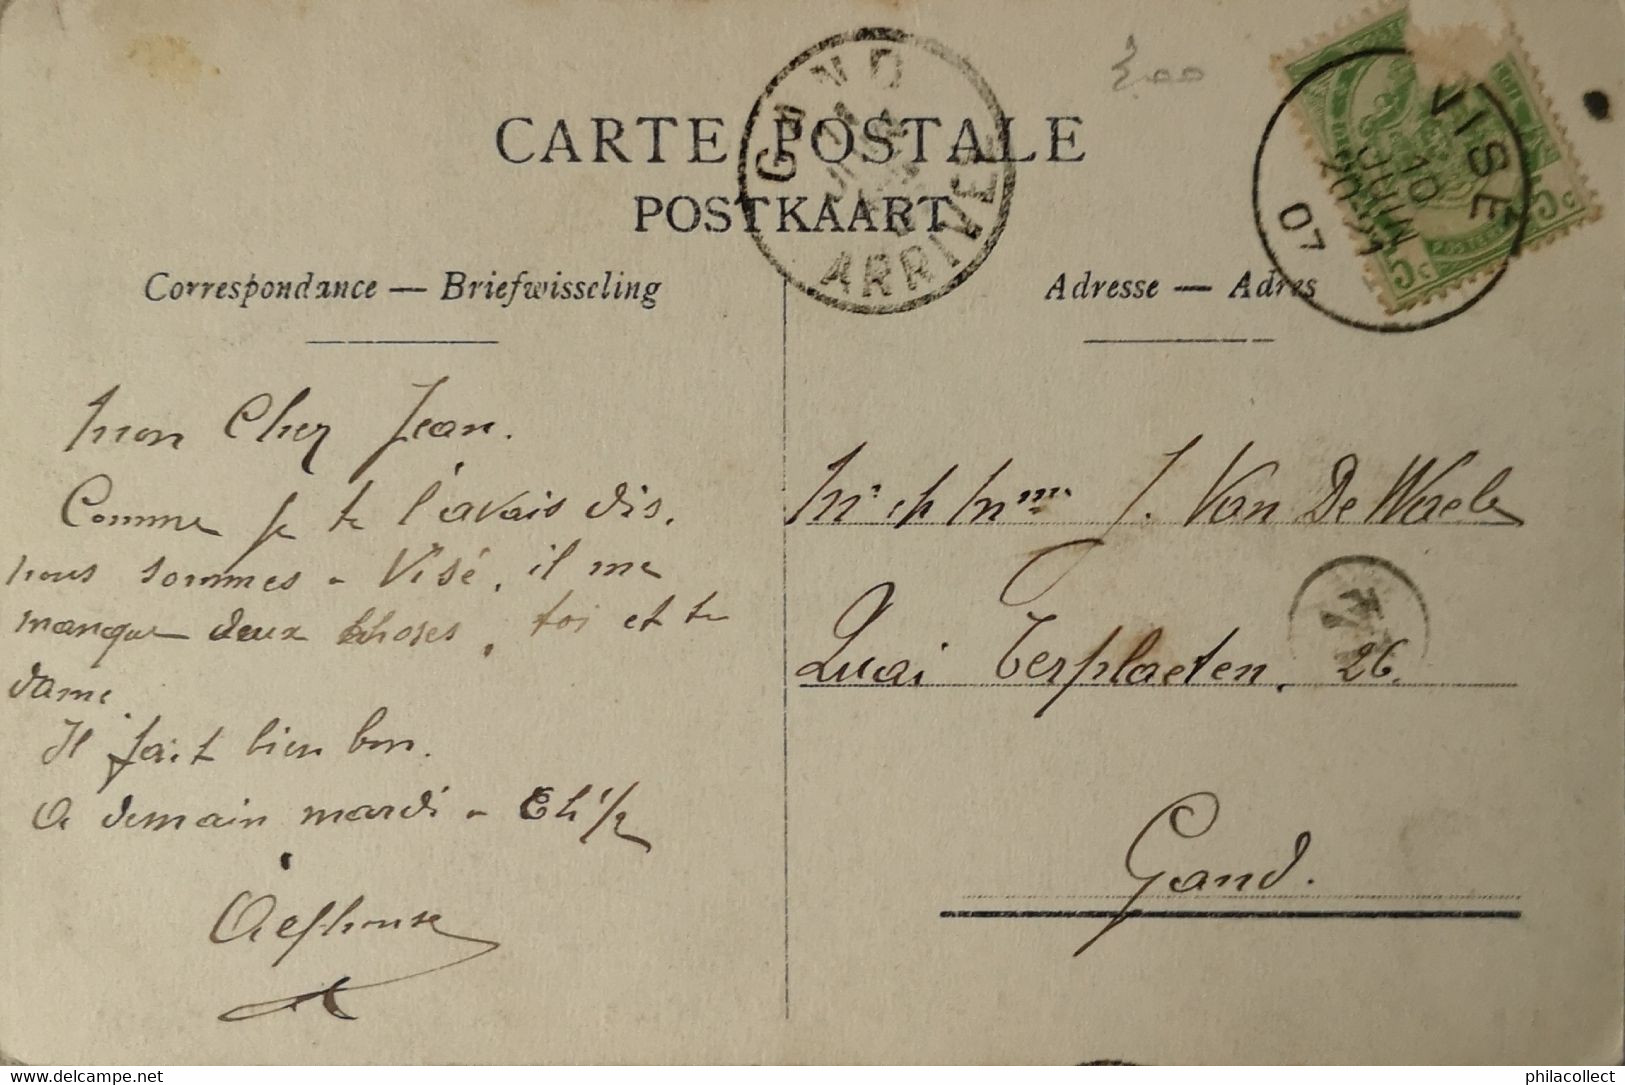 CARTE POSTALE
POSTKAART
Correspondance — Briefwisseling
Adresse — Adres
GAND
ARRIVÉE
VISÉ
10
JUIN
20-21
07
5 c
5 c
300
Mon Cher Jean.
Comme je te l'avais dis,
nous sommes a Visé, il me
manque deux choses, toi et ta
dame.
Il fait bien bon.
A demain mardi a
Alphonse
Mr et Mme J. Van De Waele
Quai Terplaeten, 26.
Gand.
philacollect